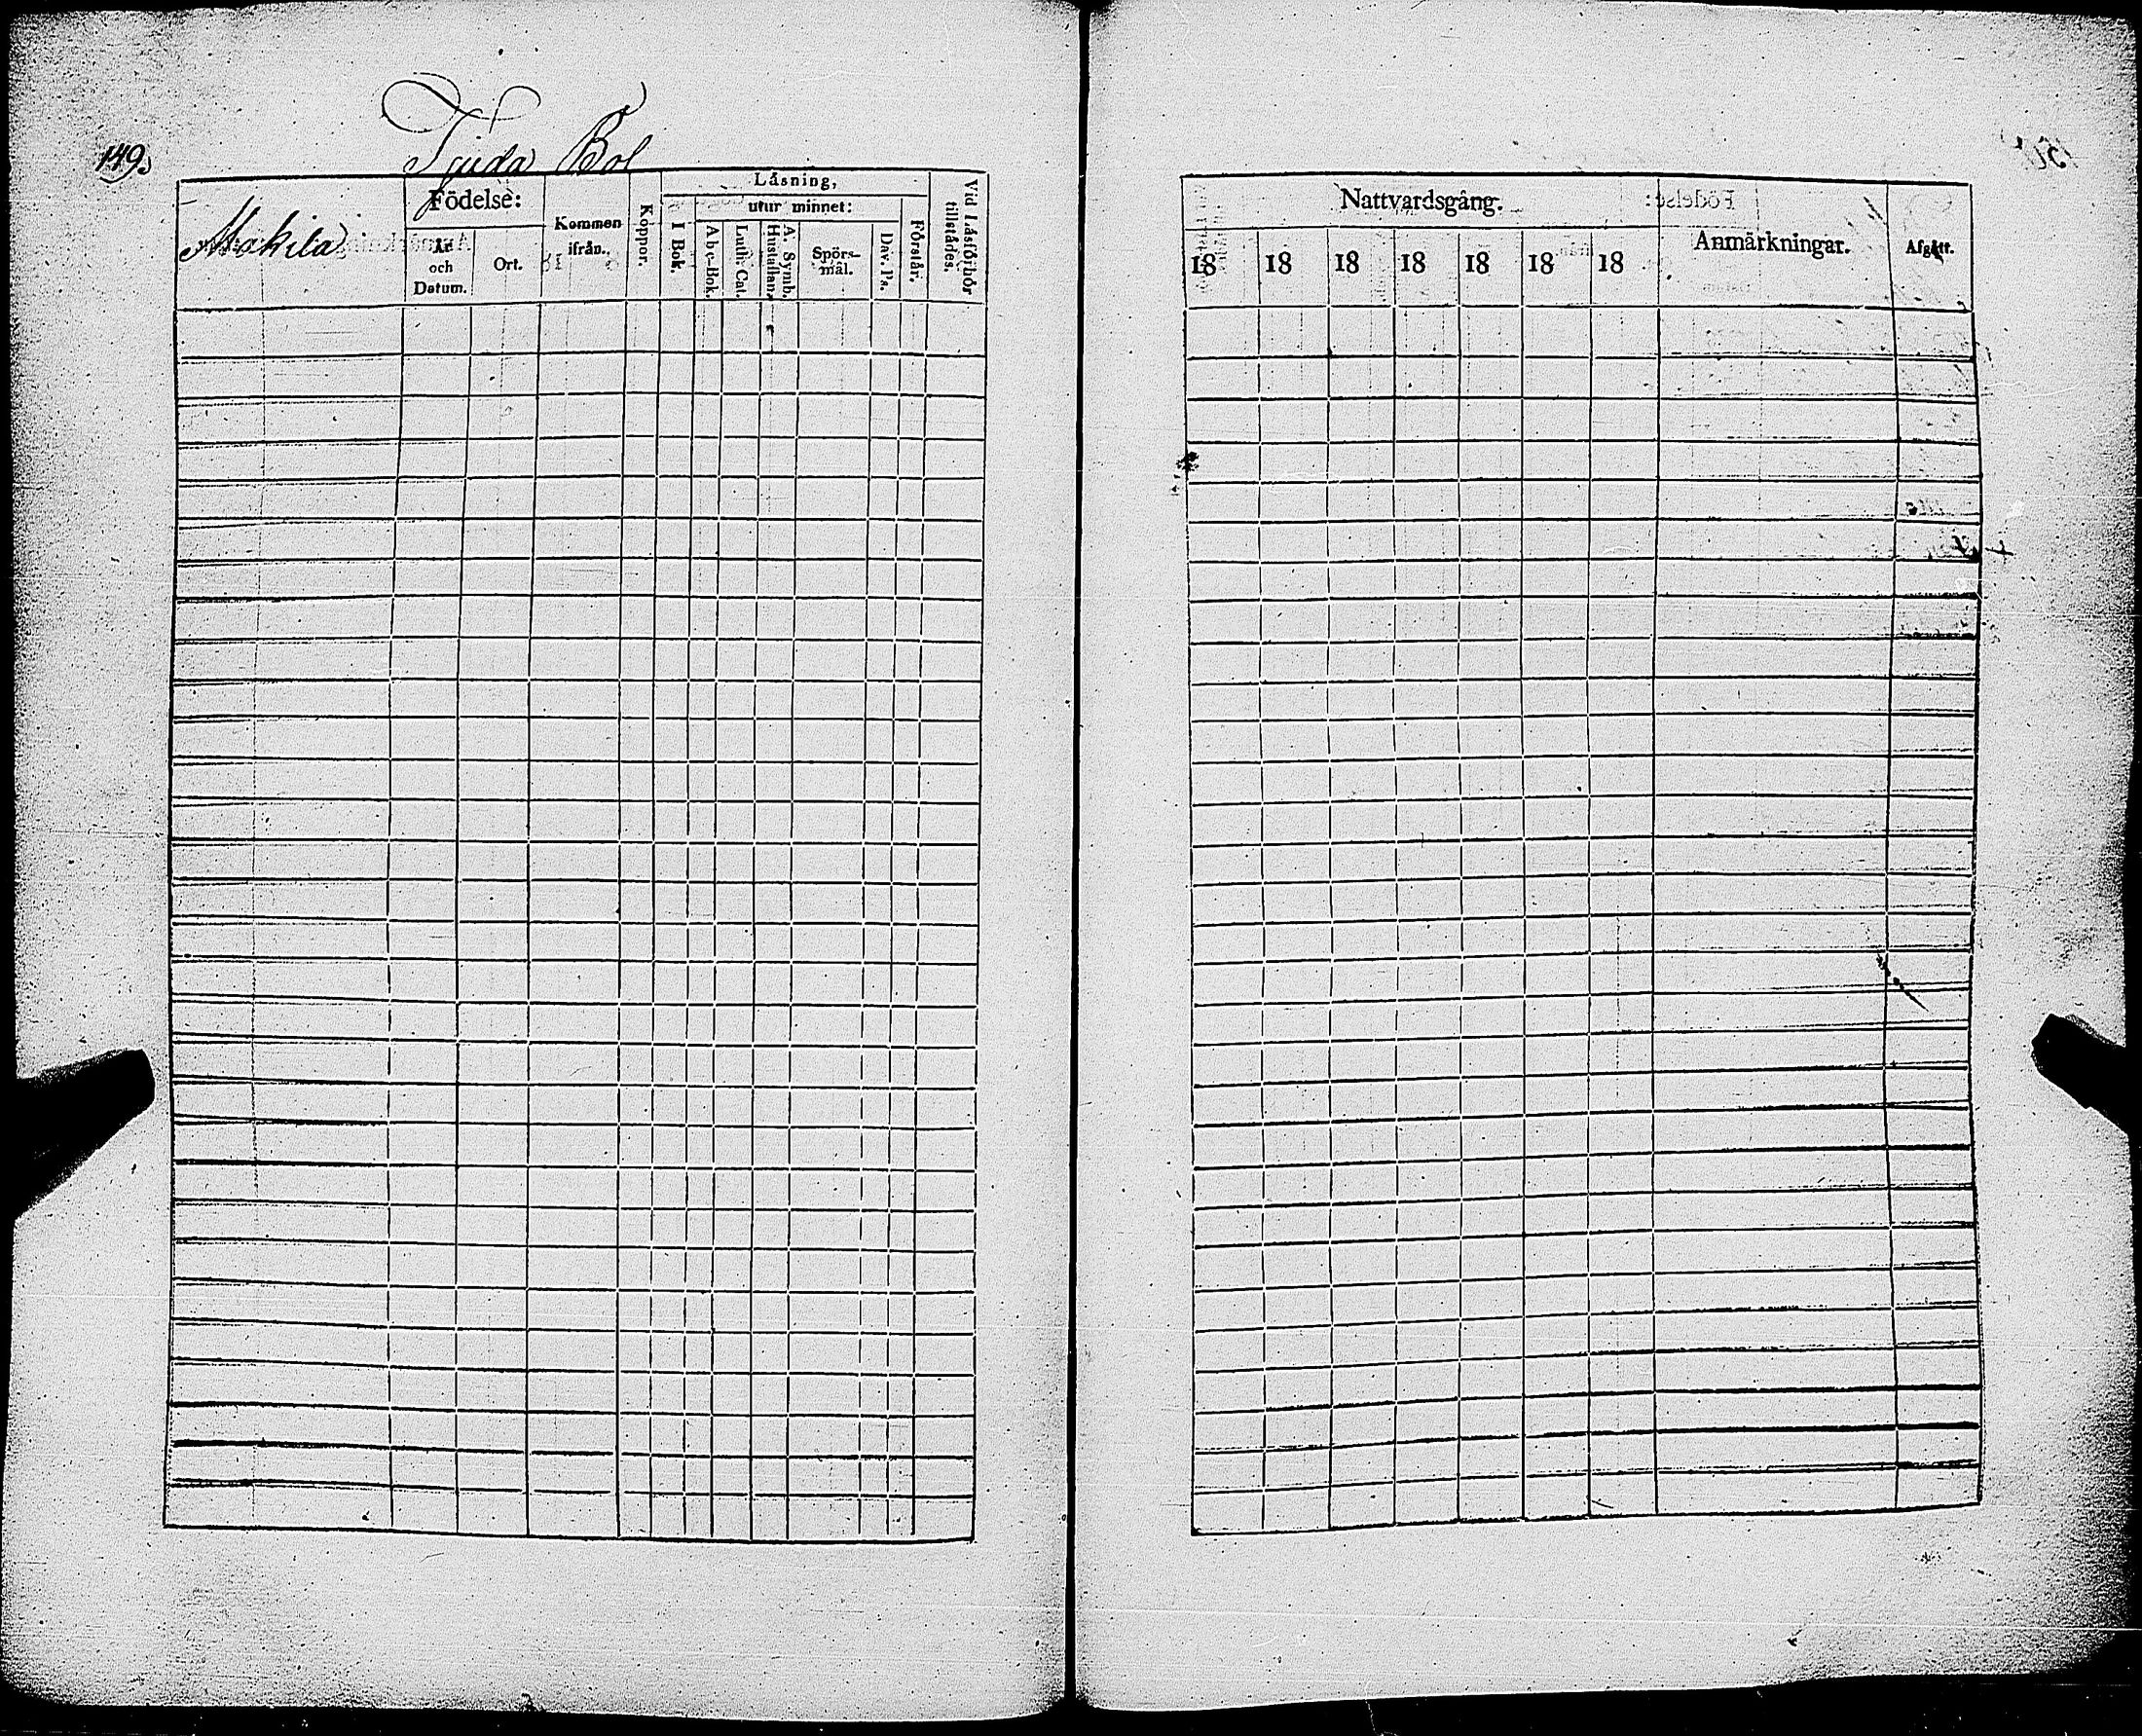 149.
Tjuda Bol
Makila
Födelse:
År och Datum.
Ort.
Kommen ifrån.
Koppor.
Läsning,
I Bok.
utur minnet:
Abc-Bok.
Luth. Cat.
A. Symb. Hustaflan.
Spörs-mål.
Dav. Ps.
Förstår.
Vid Läsförhör tillstädes.
Nattvardsgång.
18 18 18 18 18 18 18
Anmärkningar.
Afgått.